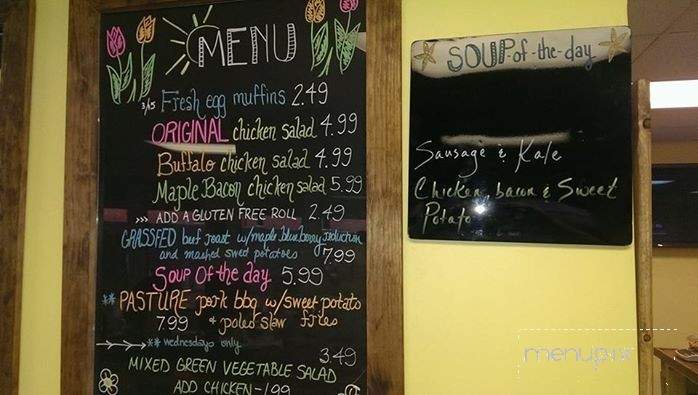 MENU
3/15 Fresh egg muffins 2.49
ORIGINAL chicken salad 4.99
Buffalo chicken salad 4.99
Maple Bacon chicken salad 5.99
>>> ADD A GLUTEN FREE ROLL 2.49
GRASSFED beef roast w/maple blueberry reduction
and mashed sweet potatoes 7.99
Soup Of the day 5.99
** PASTURE pork bbq w/sweet potato
7.99 + paleo slaw fries
** wednesdays only
3.49
MIXED GREEN VEGETABLE SALAD
ADD CHICKEN - 1.99
SOUP-of-the-day
Sausage & Kale
Chicken, bacon & Sweet
Potato
menupix